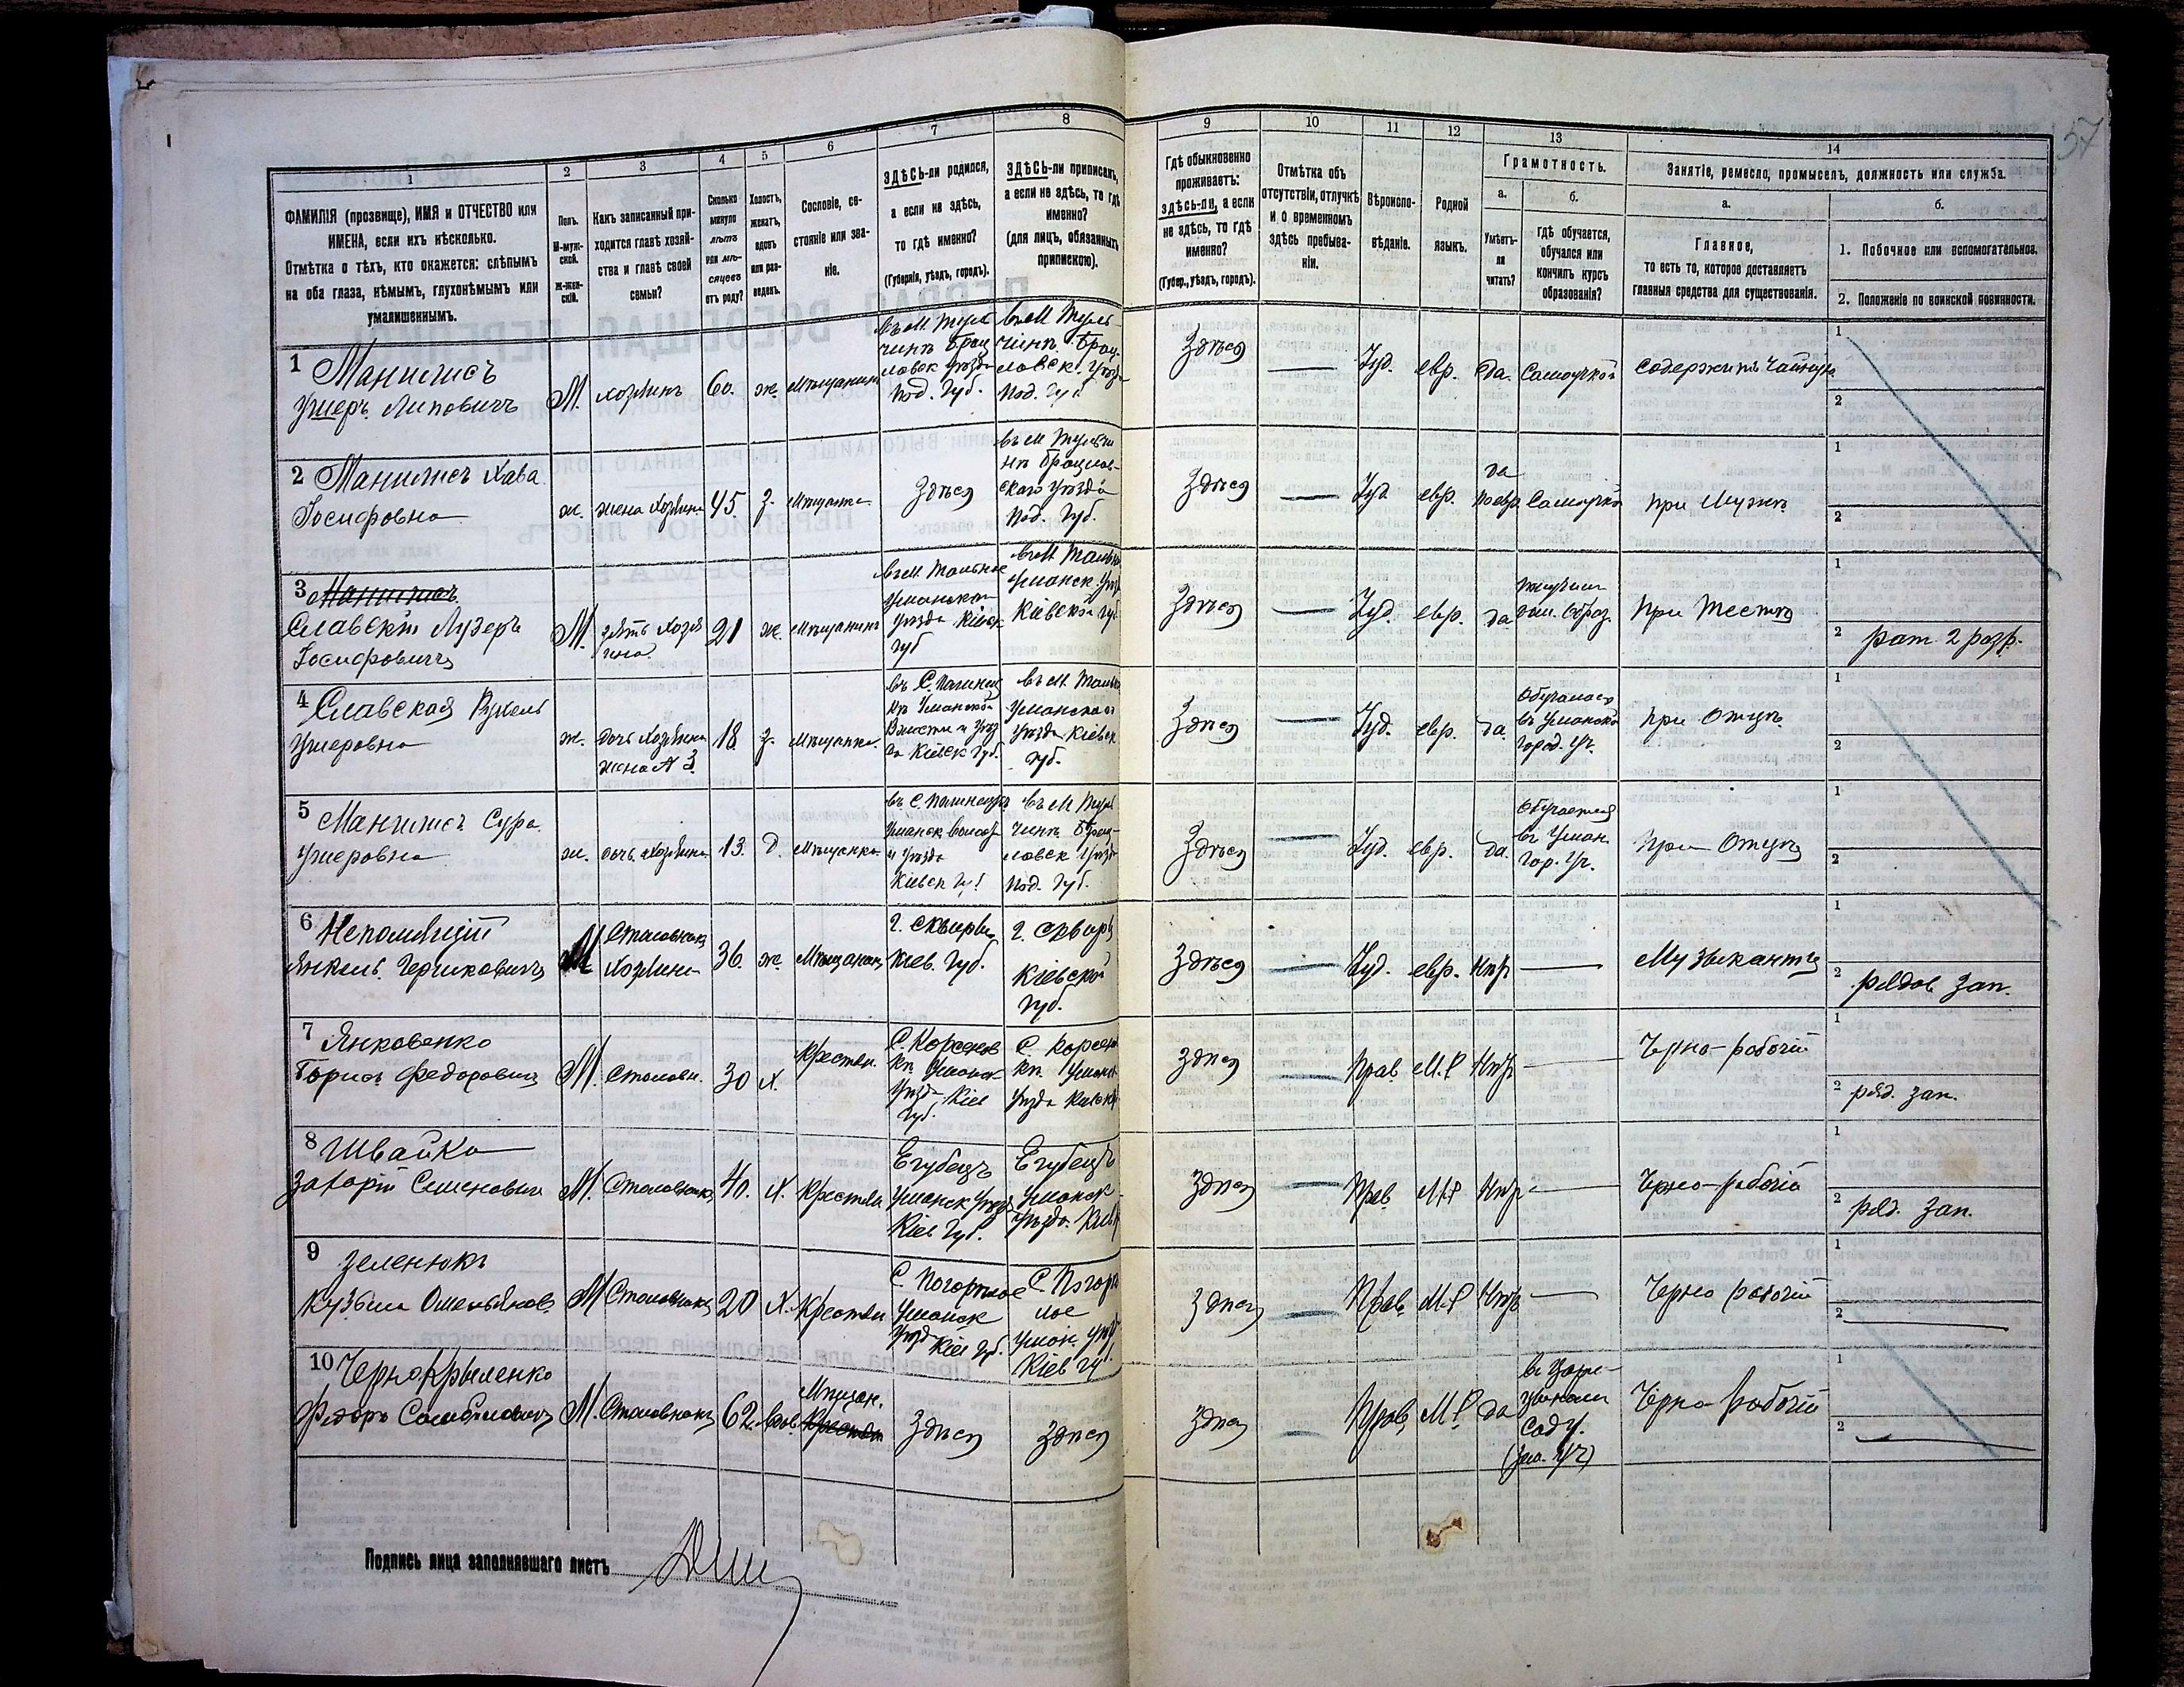 57
1 2 3 4 5 6 7 8 9 10 11 12 13 14
ФАМИЛІЯ (прозвище), ИМЯ и ОТЧЕСТВО или
ИМЕНА, если ихъ нѣсколько.
Отмѣтка о тѣхъ, кто окажется: слѣпымъ
на оба глаза, нѣмымъ, глухонѣмымъ или
умалишеннымъ.
Полъ.
М-муж-
ской.
Ж-жен-
скій.
Какъ записанный при-
ходится главѣ хозяй-
ства и главѣ своей
семьи?
Сколько
минуло
лѣтъ
или мѣ-
сяцевъ
отъ роду?
Холостъ,
женатъ,
вдовъ
или раз-
веденъ.
Сословіе, со-
стояніе или зва-
ніе.
ЗДѢСЬ-ли родился,
а если не здѣсь,
то гдѣ именно?
(Губернія, уѣздъ, городъ).
ЗДѢСЬ-ли приписанъ,
а если не здѣсь, то гдѣ
именно?
(для лицъ, обязанныхъ
припискою).
Гдѣ обыкновенно
проживаетъ:
здѣсь-ли, а если
не здѣсь, то гдѣ
именно?
(Губер., уѣздъ, городъ).
Отмѣтка объ
отсутствіи, отлучкѣ
и о временномъ
здѣсь пребыва-
ніи.
Вѣроиспо-
вѣданіе.
Родной
языкъ.
Грамотность.
а.
Умѣетъ-
ли
читать?
б.
гдѣ обучается,
обучался или
кончилъ курсъ
образованія?
Занятіе, ремесло, промыселъ, должность или служба.
а.
Главное,
то есть то, которое доставляетъ
главныя средства для существованія.
б.
1. Побочное или вспомогательное.
2. Положеніе по воинской повинности.
1 Манилисъ
Ушеръ Липовичъ
М. хозяинъ 60. ж. мѣщанинъ
въ м. Туль
чинѣ Брац
ловск уѣзда
Под. Губ.
въ м. Туль-
чинѣ Брац-
ловск. уѣзда
Под. Губ.
Здѣсь — Іуд. евр. да. Самоучкой содержитъ чайную
1
2
2 Манилисъ Хава
Іосифовна
ж. жена хозяина 45. з. мѣщанка Здѣсь
въ м Тульчи
нѣ Брацлав-
скаго уѣзда
Под. Губ.
Здѣсь — Іуд евр. да
по евр. Самоучкой при мужѣ
1
2
3 Манилисъ
Славскій Лузеръ
Іосифовичъ
М. зять хозя
ина. 21 ж. мѣщанинъ
въ м. Тальное
Уманскаго
уѣзда Кіевск
Губ
въ м. Тальн
Уманск. уѣз
Кіевской Губ.
Здѣсь — Іуд. евр. да.
дом. образ. при тестѣ
1
2 рат. 2 разр.
4 Славская Рухель
Ушеровна
ж. дочь хозяина
жена № 3. 18. з. мѣщанка.
Уманской
Волости и уѣз
да Кіевск Губ.
въ м. Тальн
Уманскаго
уѣзда Кіевск.
Губ.
Здѣсь — Іуд. евр. да.
Обучалась
въ Уманско
Город. Уч.
при отцѣ
1
2
5 Манилисъ Сура
Ушеровна
ж. дочь хозяина 13. д. мѣщанка
Уманск волост
и уѣзда
Кіевск Губ
въ м Туль
чинѣ Брац-
ловск уѣзд
Под. Губ.
Здѣсь — Іуд. евр. да.
Обучается
въ Уман.
Гор. Уч.
при отцѣ
1
2
6 Непомнящій
Янкель Гершковичъ
М Столовникъ
хозяина 36. ж. мѣщанинъ
г. Сквиры
Кіев. Губ.
г. Сквиры
Кіевской
Губ.
Здѣсь — Іуд. евр. Нѣтъ — Музыкантъ
1
2 рядов. зап.
7 Янковенко
Борисъ Федоровичъ
М. Столовн. 30 х. крестьян.
С. Корсунов
кѣ Уманск
уѣзда Кіев
Губ.
Здѣсь — Прав. М.Р Нѣтъ — Черно-рабочій
1
2 ряд. зап.
8 Швайка
Захарій Семеновичъ
М. Столовникъ 40. х. крестьян.
Егубецъ
Уманск уѣзд
Кіев Губ.
Егубецъ
Уманск.
уѣзда. Кіев
Здѣсь — Прав. М.Р Нѣтъ — Черно-рабочій
1
2 ряд. зап.
9 Зеленюкъ
Кузьма Омельянов
М Столовникъ 20 х. крестьян
С. Погорѣлое
Уманск
уѣзд Кіев Губ.
С. Погорѣ
лое
Уман. уѣзд
Кіев Губ
Здѣсь — Прав. М.Р Нѣтъ — Черно рабочій
1
2 —
10 Чернокрыленко
Федоръ Самойловичъ
М. Столовникъ 62. вдов. Мѣщан.
крестьян
Здѣсь Здѣсь Здѣсь — Прав. М.Р. да
въ Цари-
цыномъ
Саду.
Черно рабочій
1
2 —
Подпись лица заполнявшаго листъ